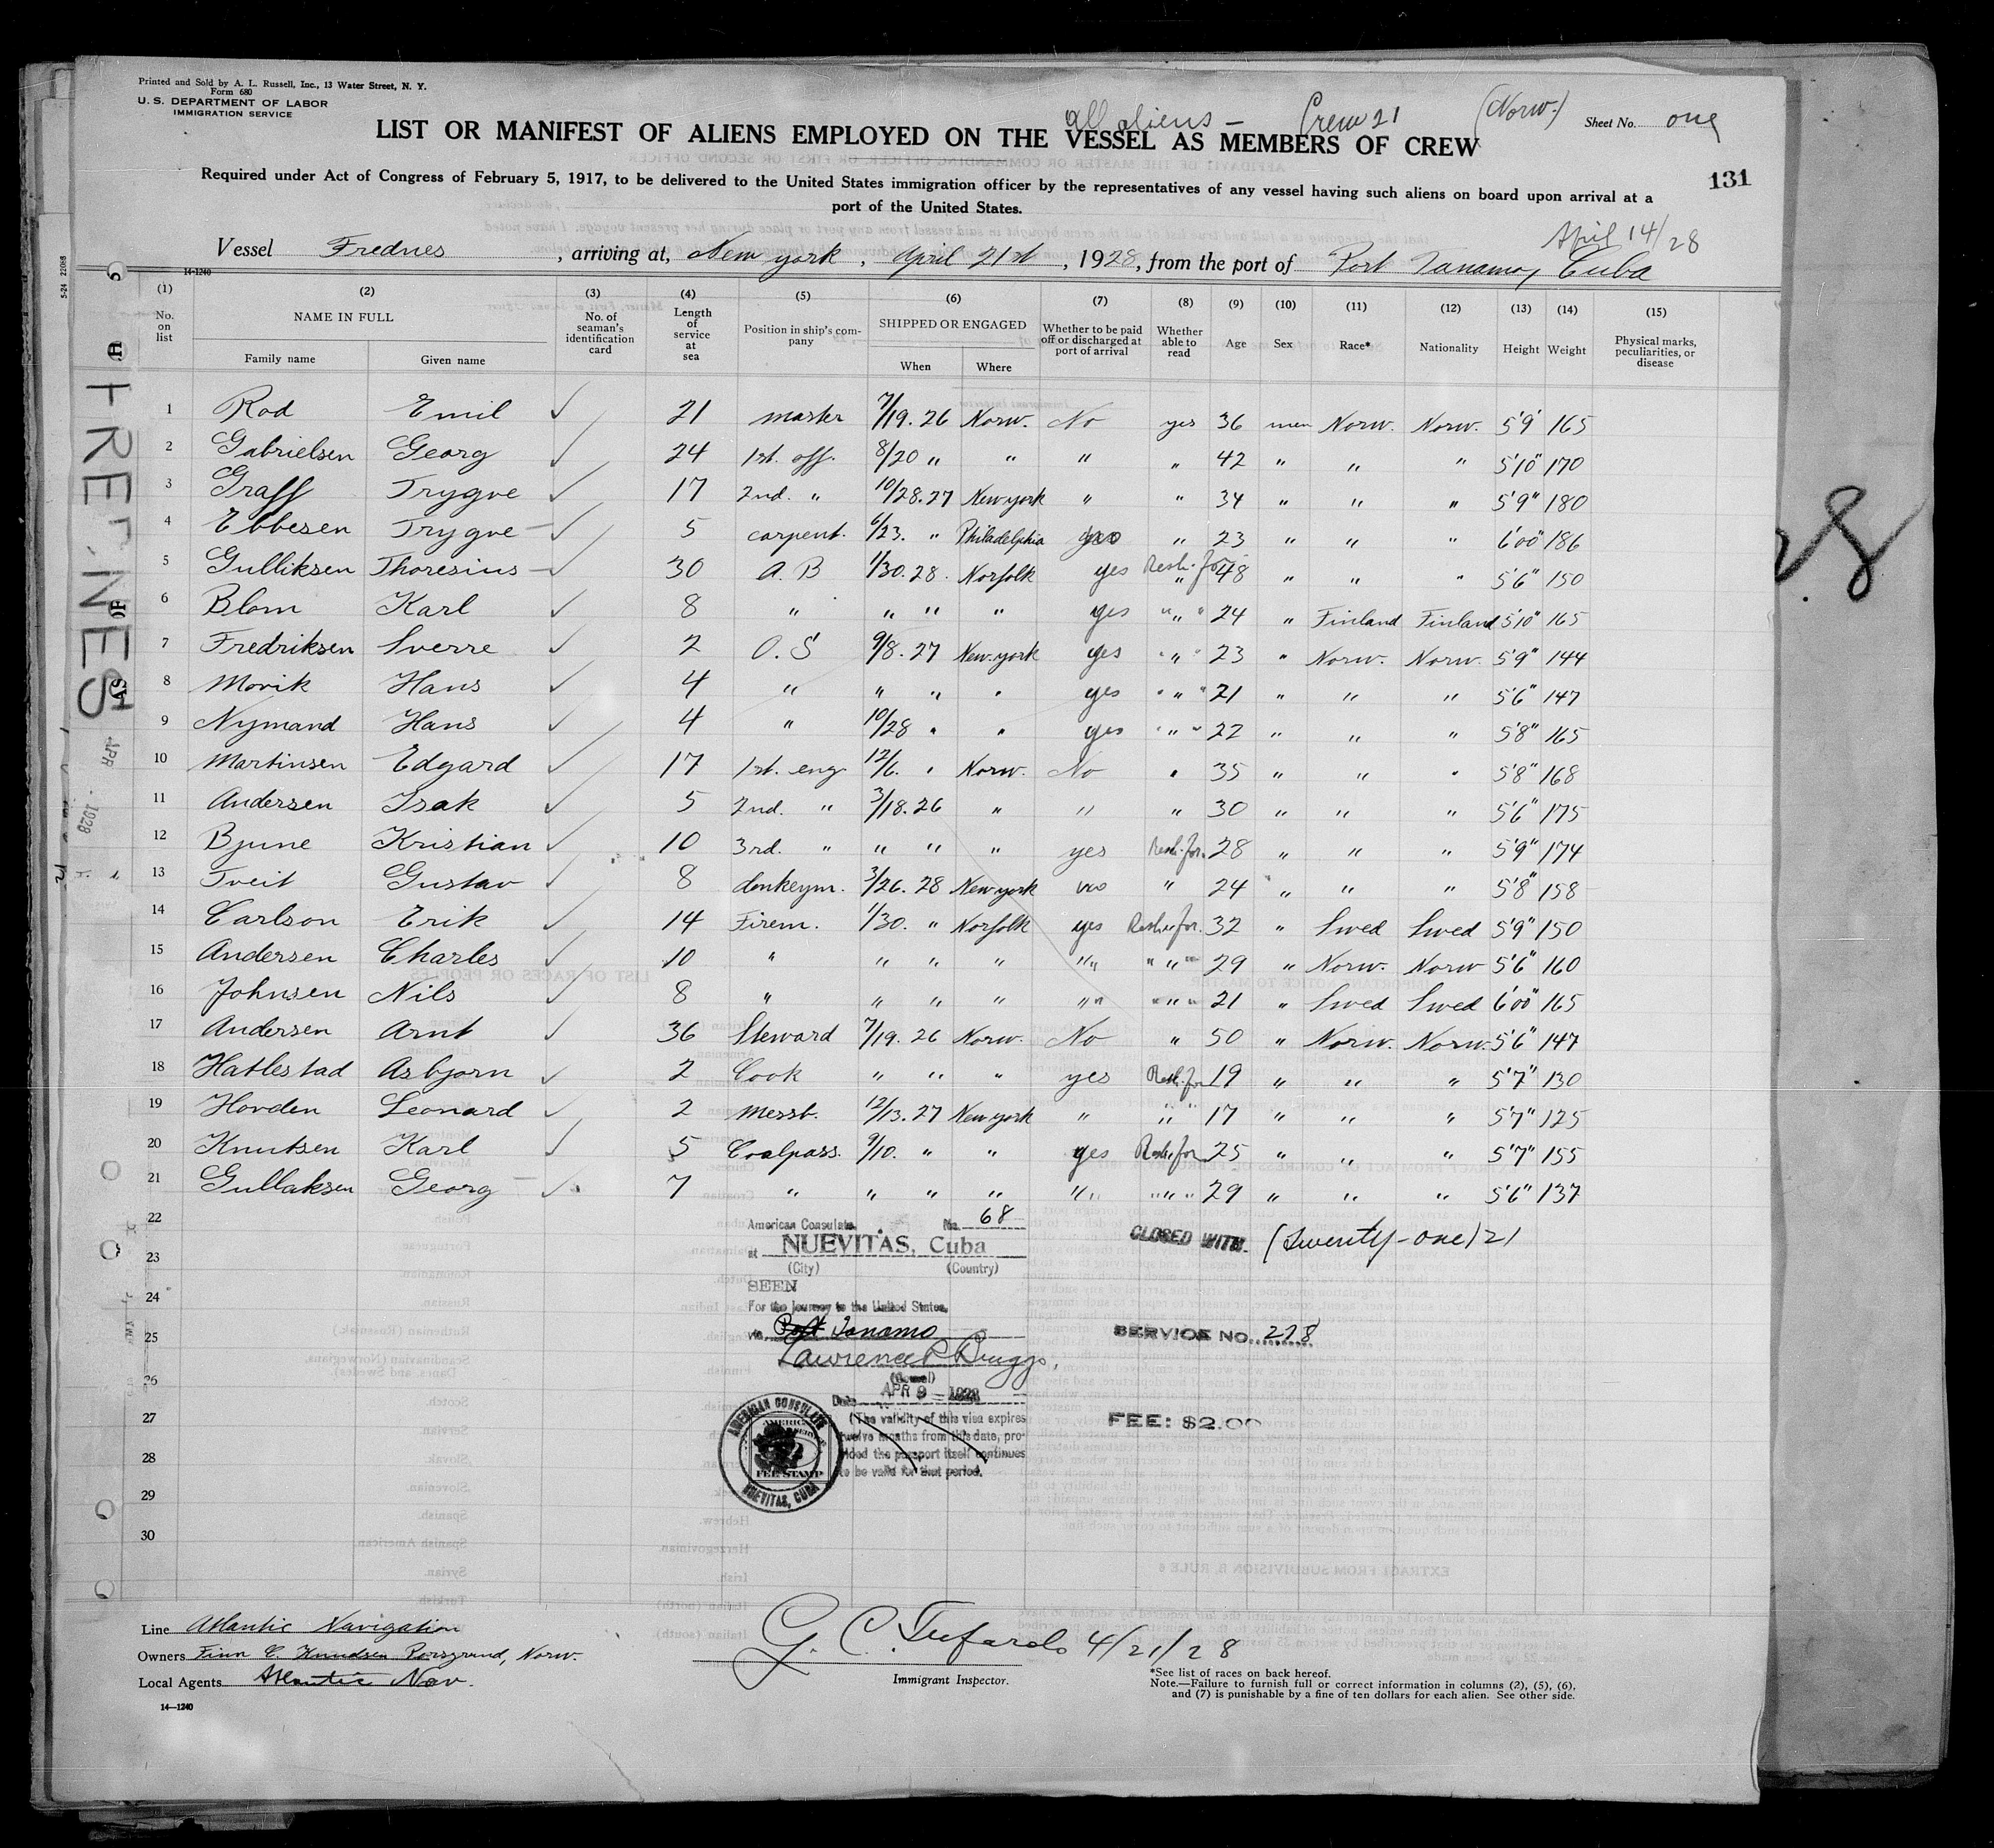 Printed and Sold by A. L. Russell, Inc., 13 Water Street, N. Y.
Form 680
U. S. DEPARTMENT OF LABOR
IMMIGRATION SERVICE
all aliens – Crew 21 (Norw.) Sheet No. one
LIST OR MANIFEST OF ALIENS EMPLOYED ON THE VESSEL AS MEMBERS OF CREW
131
Required under Act of Congress of February 5, 1917, to be delivered to the United States immigration officer by the representatives of any vessel having such aliens on board upon arrival at a
port of the United States.
April 14/28
Vessel Frednes, arriving at, New york, April 21st, 1928, from the port of Port Tanamo, Cuba
14-1240
(1) (2) (3) (4) (5) (6) (7) (8) (9) (10) (11) (12) (13) (14) (15)
No. on list NAME IN FULL Family name Given name No. of seaman's identification card Length of service at sea Position in ship's company SHIPPED OR ENGAGED When Where Whether to be paid off or discharged at port of arrival Whether able to read Age Sex Race* Nationality Height Weight Physical marks, peculiarities, or disease
1 Rod Emil ✓ 21 master 7/19. 26 Norw. No yes 36 men Norw. Norw. 5'9" 165
2 Gabrielsen Georg ✓ 24 1st. off. 8/20 " " " " 42 " " " 5'10" 170
3 Graff Trygve ✓ 17 2nd. " 10/28.27 New york " " 34 " " " 5'9" 180
4 Ebbesen Trygve – ✓ 5 carpent. 6/23. " Philadelphia " 23 " " " 6'00" 186
5 Gulliksen Thoresius – ✓ 30 A. B 1/30. 28. Norfolk yes Resh. for " 48 " " " 5'6" 150
6 Blom Karl ✓ 8 " " " " yes " " " 24 " Finland Finland 5'10" 165
7 Fredriksen Sverre ✓ 2 O. S 9/8. 27 New york yes " " " 23 " Norw. Norw. 5'9" 144
8 Movik Hans ✓ 4 " " " " yes " " " 21 " " " 5'6" 147
9 Nymand Hans ✓ 4 " 10/28 " " yes " " " 22 " " " 5'8" 165
10 Martinsen Edgard ✓ 17 1st. eng 12/6. " Norw. No " 35 " " " 5'8" 168
11 Andersen Isak ✓ 5 2nd. " 3/18. 26 " " " 30 " " " 5'6" 175
12 Bjune Kristian ✓ 10 3rd. " " " " yes Resh. for. 28 " " " 5'9" 174
13 Tveit Gustav ✓ 8 donkeym. 3/26. 28 New york no " 24 " " " 5'8" 158
14 Carlson Erik ✓ 14 Firem. 1/30. " Norfolk yes Resh. for. 32 " Swed Swed 5'9" 150
15 Andersen Charles ✓ 10 " " " " " " " " 29 " Norw. Norw 5'6" 160
16 Johnsen Nils ✓ 8 " " " " " " " " 21 " Swed Swed 6'00" 165
17 Andersen Arnt ✓ 36 Steward 7/19. 26 Norw. No " 50 " Norw. Norw. 5'6" 147
18 Hatlestad Asbjorn ✓ 2 Cook " " " yes Resh. for 19 " " " 5'7" 130
19 Hovden Leonard ✓ 2 Messb. 12/13. 27 New york " " " 17 " " " 5'7" 125
20 Knutsen Karl ✓ 5 Coalpass. 9/10. " " yes Resh. for 25 " " " 5'7" 155
21 Gullaksen Georg – ✓ 7 " " " " " " " " 29 " " " 5'6" 137
22
23
24
25
26
27
28
29
30
American Consulate No. 68
at NUEVITAS, Cuba
(City) (Country)
SEEN
For the journey to the United States,
via Port Tanamo
Lawrence P. Briggs,
(Consul)
Date APR 9 – 1928
(The validity of this visa expires
twelve months from this date, pro-
vided the passport itself continues
to be valid for that period.
AMERICAN CONSULATE
FEE STAMP
NUEVITAS, CUBA
CLOSED WITH (Twenty-one) 21
SERVICE NO. 278
FEE: $2.00
Line Atlantic Navigation
Owners Finn C. Knudsen Porsgrund, Norw.
Local Agents Atlantic Nav.
14—1240
4/21/28
Immigrant Inspector.
*See list of races on back hereof.
Note.—Failure to furnish full or correct information in columns (2), (5), (6),
and (7) is punishable by a fine of ten dollars for each alien. See other side.
FREDNES